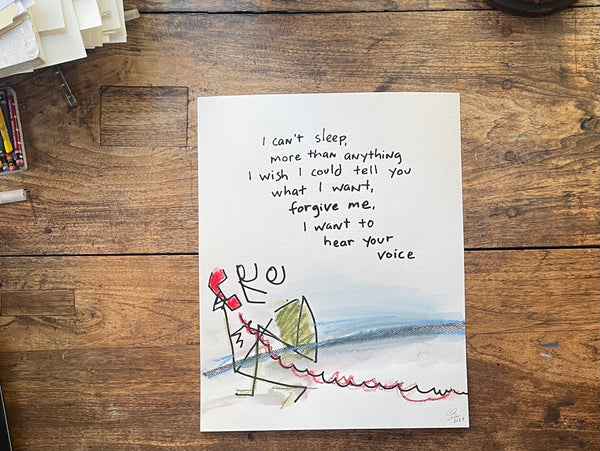 I can't sleep,
more than anything
I wish I could tell you
what I want,
forgive me.
I want to
hear your
voice